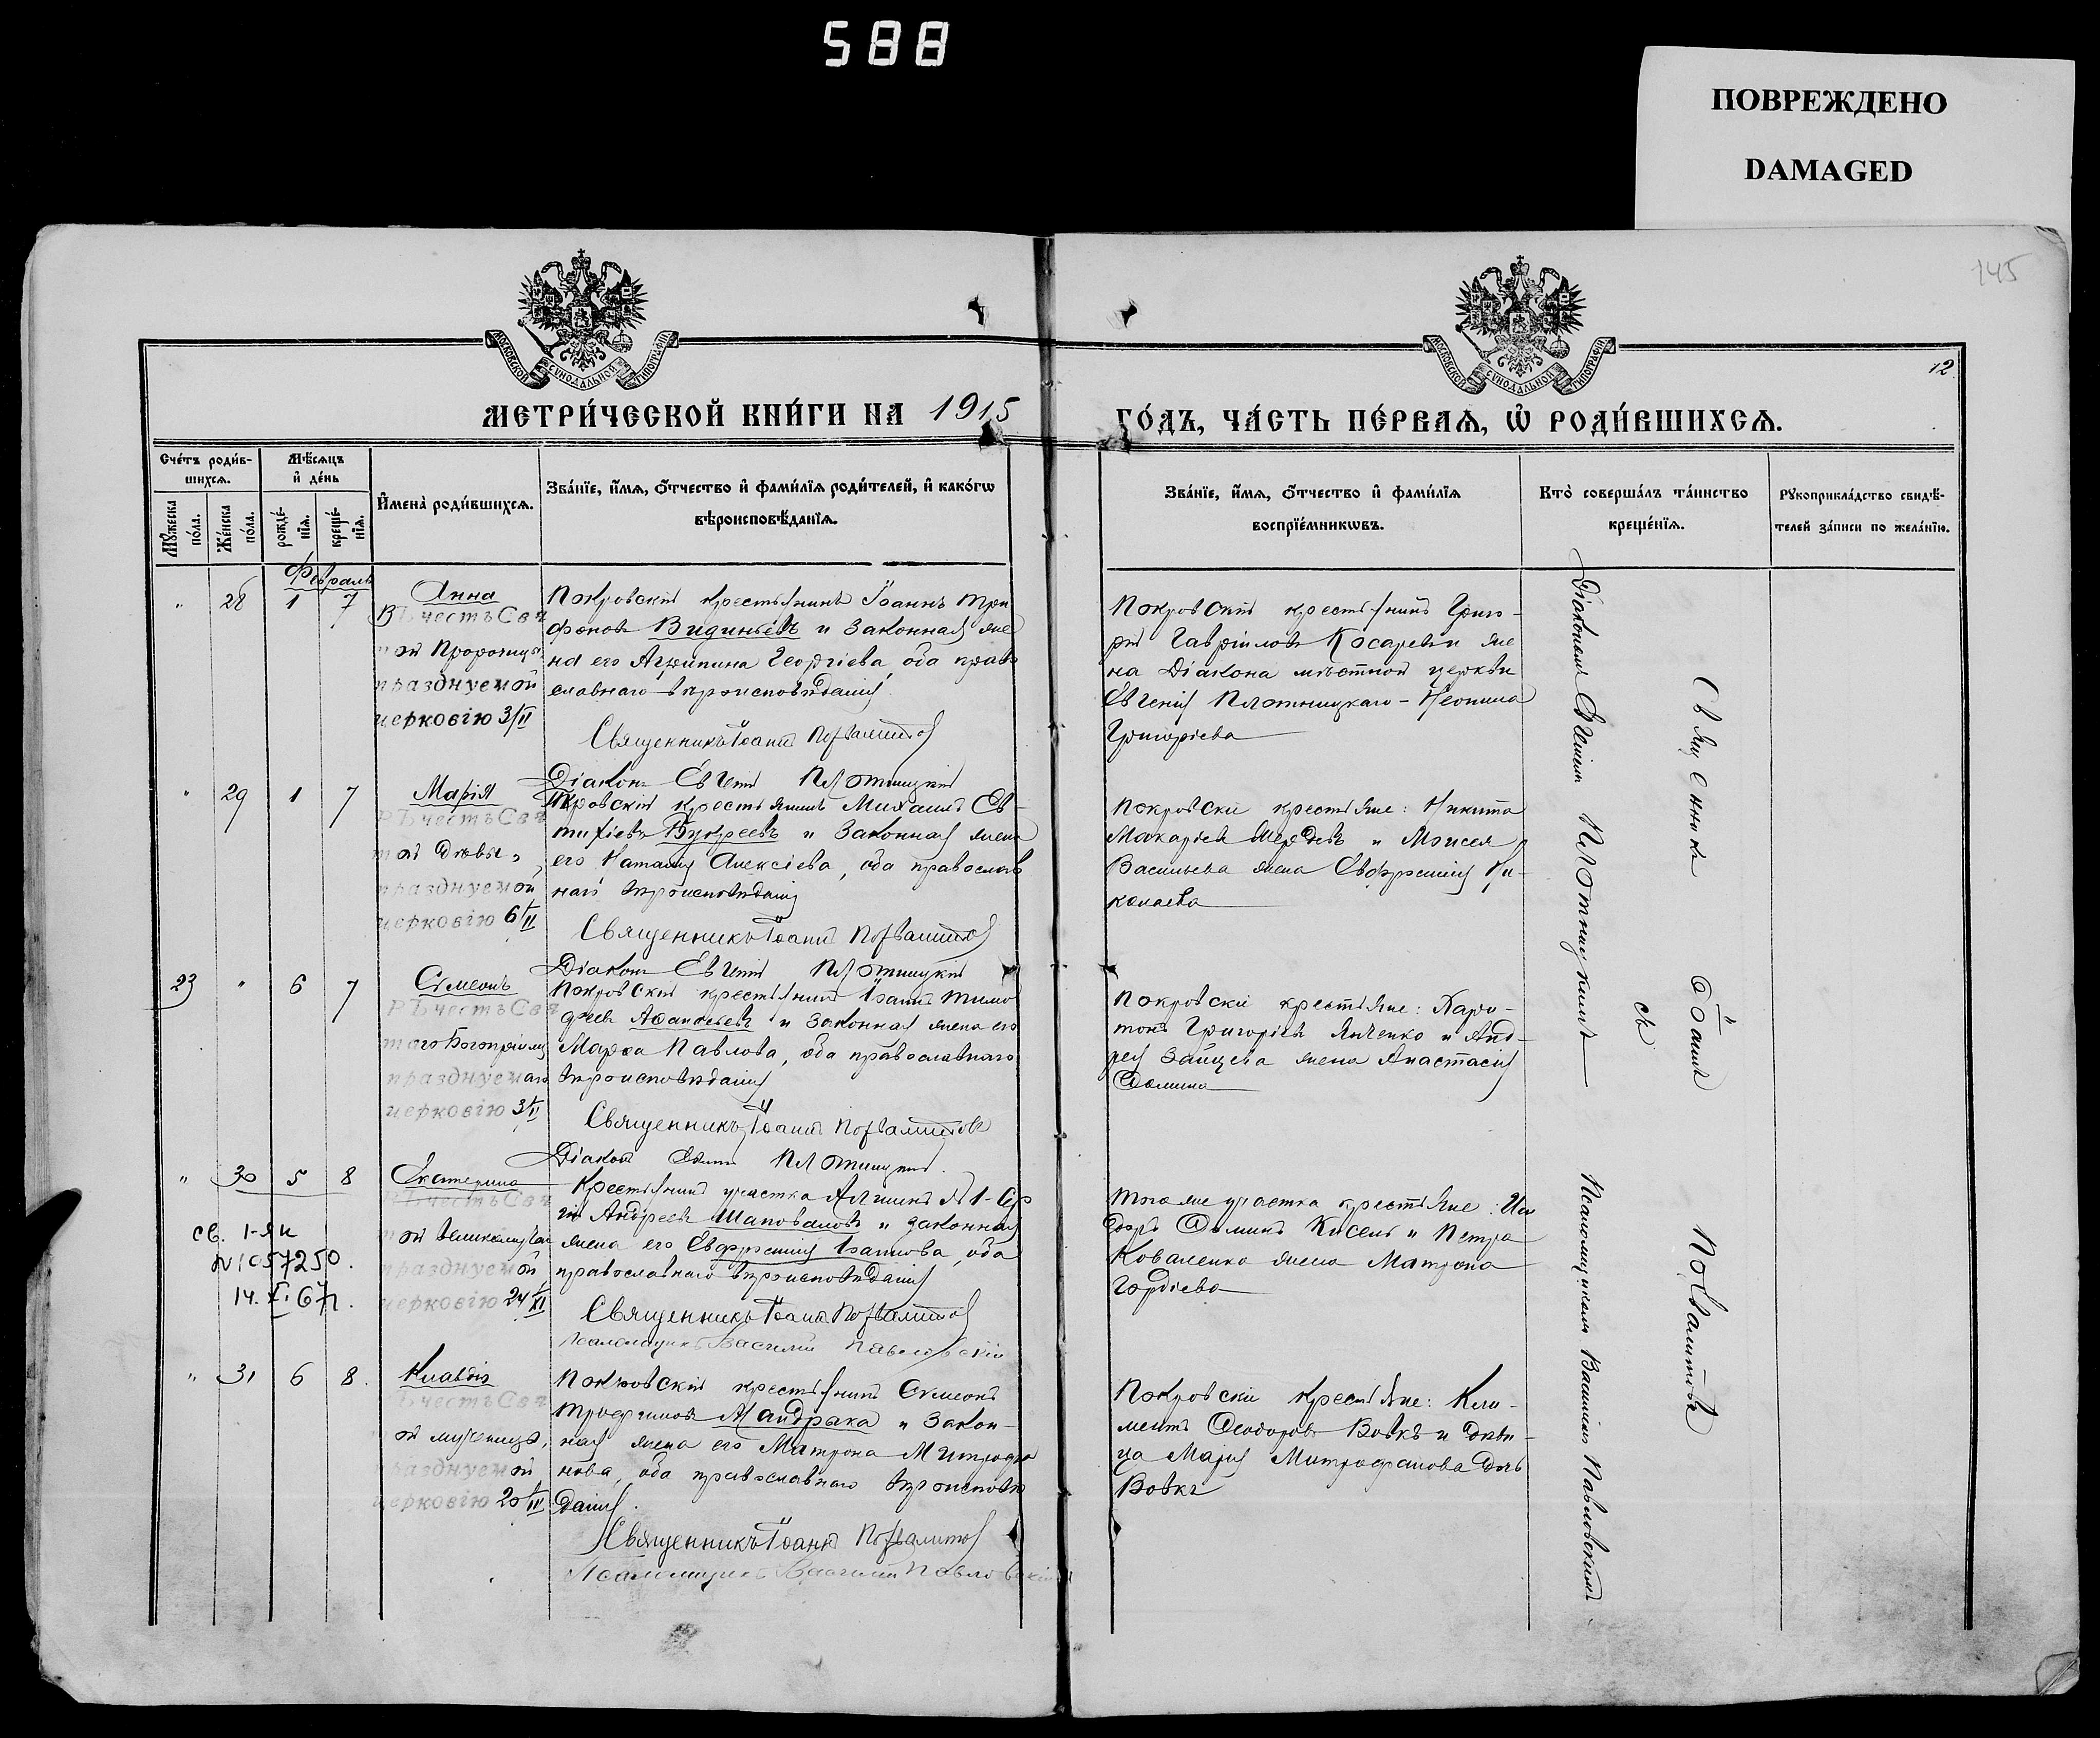 588
ПОВРЕЖДЕНО
DAMAGED
145
12
МОСКОВСКОЙ СѴНОДАЛЬНОЙ ТИПОГРАФІИ
МОСКОВСКОЙ СѴНОДАЛЬНОЙ ТИПОГРАФІИ
МЕТРИ́ЧЕСКОЙ КНИ́ГИ НА 1915
ГО́ДЪ, ЧА́СТЬ ПЕ́РВАѦ, Ѡ҆ РОДИ́ВШИХСѦ.
Сче́тъ роди́в-
шихсѧ.
Мꙋ́жеска по́ла.
Же́нска по́ла.
Мѣ́сѧцъ
и҆ де́нь
рожде́-
нїѧ.
креще́-
нїѧ.
И҆мена̀ роди́вшихсѧ.
Зва́нїе, и҆́мѧ, ѻ҆́тчество и҆ фами́лїѧ роди́телей, и҆ како́гѡ
вѣроисповѣ́данїѧ.
Зва́нїе, и҆́мѧ, ѻ҆́тчество и҆ фами́лїѧ
воспрїе́мникѡвъ.
Кто̀ соверша́лъ та́инство
креще́нїѧ.
Рꙋкоприкла́дство свидѣ́-
телей за́писи по жела́нїю.
Февраль
" 28 1 7
Анна
Въ честь Свя
той Пророчицы
празднуемой
церковію 3/II
Покровскій крестьянинъ Іоаннъ Три
фоновъ Видинѣевъ и законная же
на его Агрипина Георгіева, оба право
славнаго вѣроисповѣданія.
Священникъ Іоаннъ Похвалитовъ
Діаконъ Евгеній Плотницкій
Покровскій крестьянинъ Григо-
рій Гавріиловъ Косаревъ и же
на Діакона мѣстной церкви
Евгенія Плотницкаго - Неонила
Григоріева
" 29 1 7
Марія
Въ честь Свя
той Дѣвы,
празднуемой
церковію 6/II
Покровскій крестьянинъ Михаилъ Ев-
тихіевъ Букреевъ и законная жена
его Наталія Алексіева, оба православ
наго вѣроисповѣданія
Священникъ Іоаннъ Похвалитовъ
Діаконъ Евгеній Плотницкій
Покровскіе крестьяне: Никита
Макаріевъ и Моисея
Васильева жена Евфросинія Ни-
колаева
23 " 6 7
Сѵмеонъ
Въ честь Свя
таго Богопріимца
празднуемаго
церковію 3/II
Покровскій крестьянинъ Іоаннъ Тимо
феевъ Аѳанасьевъ и законная жена его
Марѳа Павлова, оба православнаго
вѣроисповѣданія
Священникъ Іоаннъ Похвалитовъ
Діаконъ Евгеній Плотницкій.
Покровскіе крестьяне: Хари-
тонъ Григорьевъ Янченко и Анд-
рея Зайцева жена Анастасія
Ѳомина
" 30 5 8
св. 1-ЯК
№ 1057250.
14.XI.67г.
Екатерина
Въ честь Свя
той великомучен
празднуемой
церковію 24/XI
Крестьянинъ участка № 1 Сер
гій Андреевъ Шаповаловъ и законная
жена его Евфросинія Іоаннова, оба
православнаго вѣроисповѣданія
Священникъ Іоаннъ Похвалитовъ
Псаломщикъ Василій Павловскій
Того же участка крестьяне: Иси
доръ Ѳоминъ Кисель и Петра
Коваленко жена Матрона
Гордіева
" 31 6 8.
Клавдія
Въ честь Свя
той мученицы,
празднуемой
церковію 20/III
Покровскій крестьянинъ Сѵмеонъ
Трофимовъ Мандрыка и закон-
ная жена его Матрона Митрофа
нова, оба православнаго вѣроисповѣ
данія.
Священникъ Іоаннъ Похвалитовъ
Псаломщикъ Василій Павловскій
Покровскіе крестьяне: Кли-
ментъ Ѳеодоровъ Вовкъ и дѣви-
ца Марія Митрофанова дочь
Вовкъ
Священникъ Іоаннъ Похвалитовъ
съ
Діакономъ Евгеніемъ Плотницкимъ
Псаломщикомъ Василіемъ Павловскимъ.